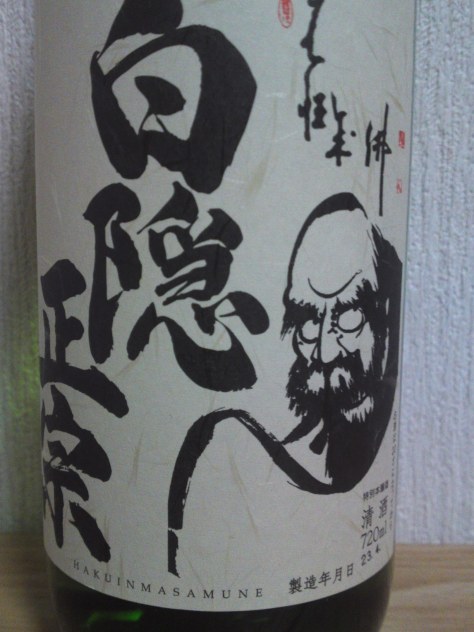 白隠
正宗
佛
HAKUINMASAMUNE
特別本醸造
清酒
720ml
23.4
製造年月日